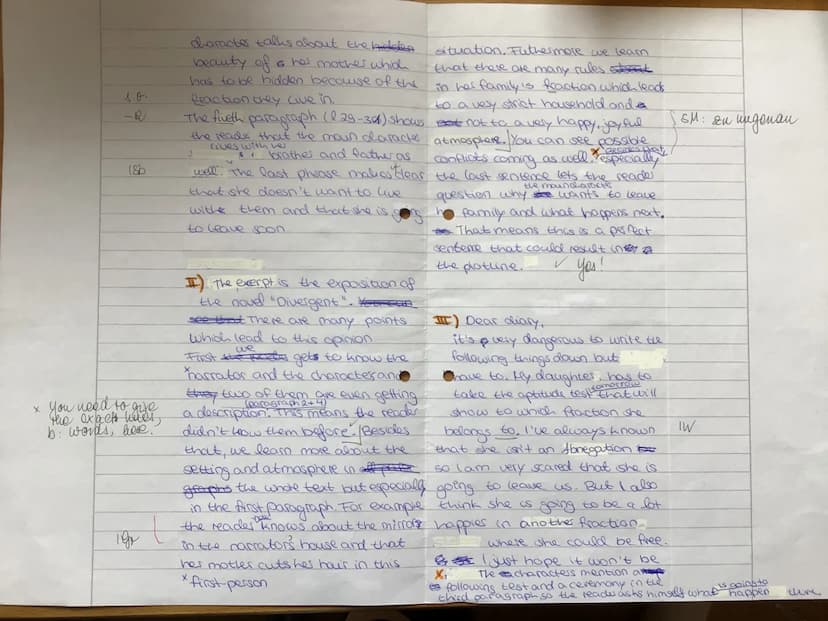 character talks about the hidden
beauty of her mother which
has to be hidden because of the
fraction they live in.
The fiveth paragraph (l 29-30) shows
the reader that the main character
lives with her
brother and father as
well. The last phrase makes clear
that she doesn't want to live
with them and that she is going
to leave soon
II) The exerpt is the exposition of
the novel "Divergent".
There are many points
which lead to this opinion
we
First gets to know the
narrator and the characters and
they two of them are even getting
(paragraph 2+4)
a description. This means the reader
didn't know them before. Besides
that, we learn more about the
setting and atmosphere in
graphs the whole text but especially
in the first paragraph. For example
the reader knows about the mirror
in the narrator's house and that
her mother cuts her hair in this
x first-person
x You need to give
the exact lines,
words, here.
situation. Futhermore we learn
that there are many rules
in her family's fraction which leads
to a very strict household and
not to a very happy, joyful
atmosphere. You can see possible
conflicts coming as well. especially
the last sentence lets the reader
the main character
question why wants to leave
family and what happens next.
That means this is a perfect
sentence that could result in
the plotline.
✓ Yes!
III) Dear diary,
it's very dangerous to write the
following things down but
have to. My daughter, has to
tomorrow
take the aptitude test that will
show to which fraction she
belongs to. I've always known
that she isn't an Abnegation
so I am very scared that she is
going to leave us. But I also
think she is going to be a lot
happier in another fraction
where she could be free.
I just hope it won't be
X. The characters mention a
following test and a ceremony in the
is going to
third paragraph so the reader asks himself what happen there
SM:
1W
1Sb
1Gr